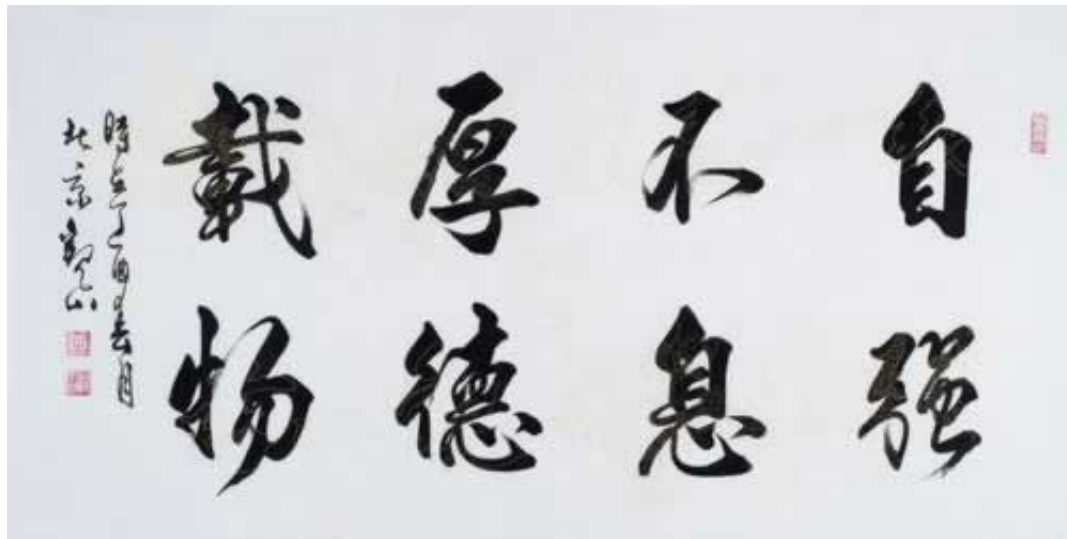 自强
不息
厚德
載物
時在丁酉春月
於京